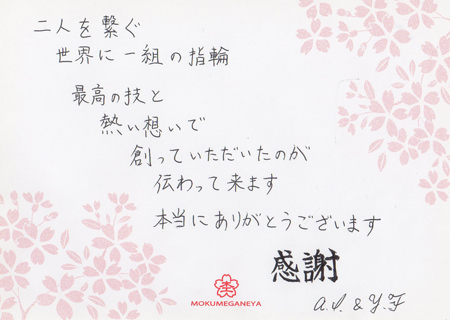 二人を繋ぐ
世界に一組の指輪
最高の技と
熱い想いで
創っていただいたのが
伝わって来ます
本当にありがとうございます
感謝
MOKUMEGANEYA